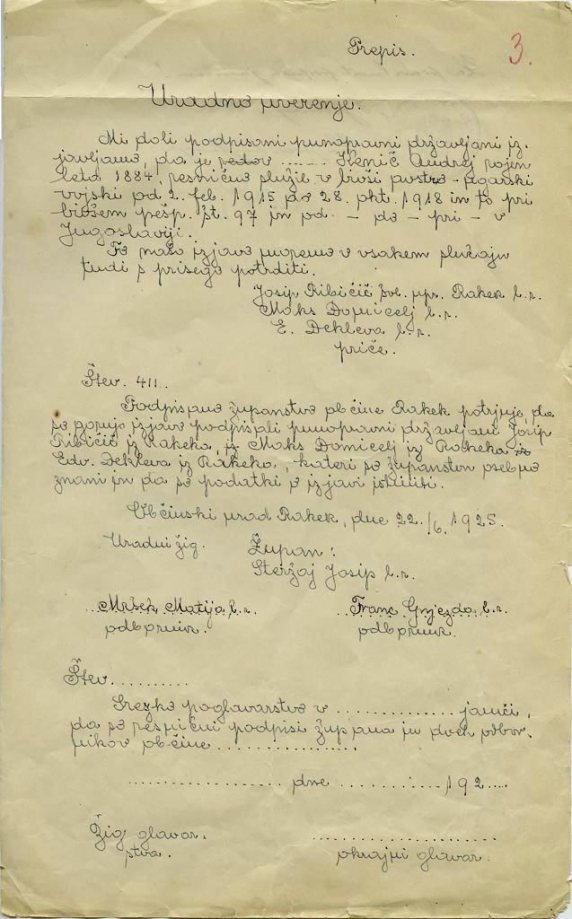 Prepis.
3.
Uradno uverenje.
Mi doli podpisani punopravni državljani iz-
javljamo, da je redov ....... Andrej rojen
leta 1884, resnično služil v bivši avstro-ogarski
vojski od 2. feb. 1915 do 28. okt. 1918 in to pri
bivšem pešp. št. 97 in od - do - pri - v
Jugoslaviji.
To našo izjavo moremo v vsakem slučaju
tudi s prisego potrditi.
Josip Ribičič žel. upr. Rakek l.r.
Maks Domicelj l.r.
E. Dekleva l.r.
priče.
Štev. 411.
Podpisano županstvo občine Rakek potrjuje, da
so gornjo izjavo podpisali punopravni državljani Josip
Ribičič iz Rakeka, iz Maks Domicelj iz Rakeka in
Edv. Dekleva iz Rakeka, kateri so županstvu osebno
znani in da so podatki v izjavi istiniti.
Občinski urad Rakek, dne 22./6. 1925.
Uradni žig. Župan:
Steržaj Josip l.r.
Mršek Matija l.r. Franc Gnjezda l.r.
odbornik. odbornik.
Štev. ..........
Srezko poglavarstvo v .............. jamči,
da so resnični podpisi župana in dveh odbor-
nikov občine ................
.................. dne ........... 192.....
Žig glavar- ......................
stva. okrajni glavar.